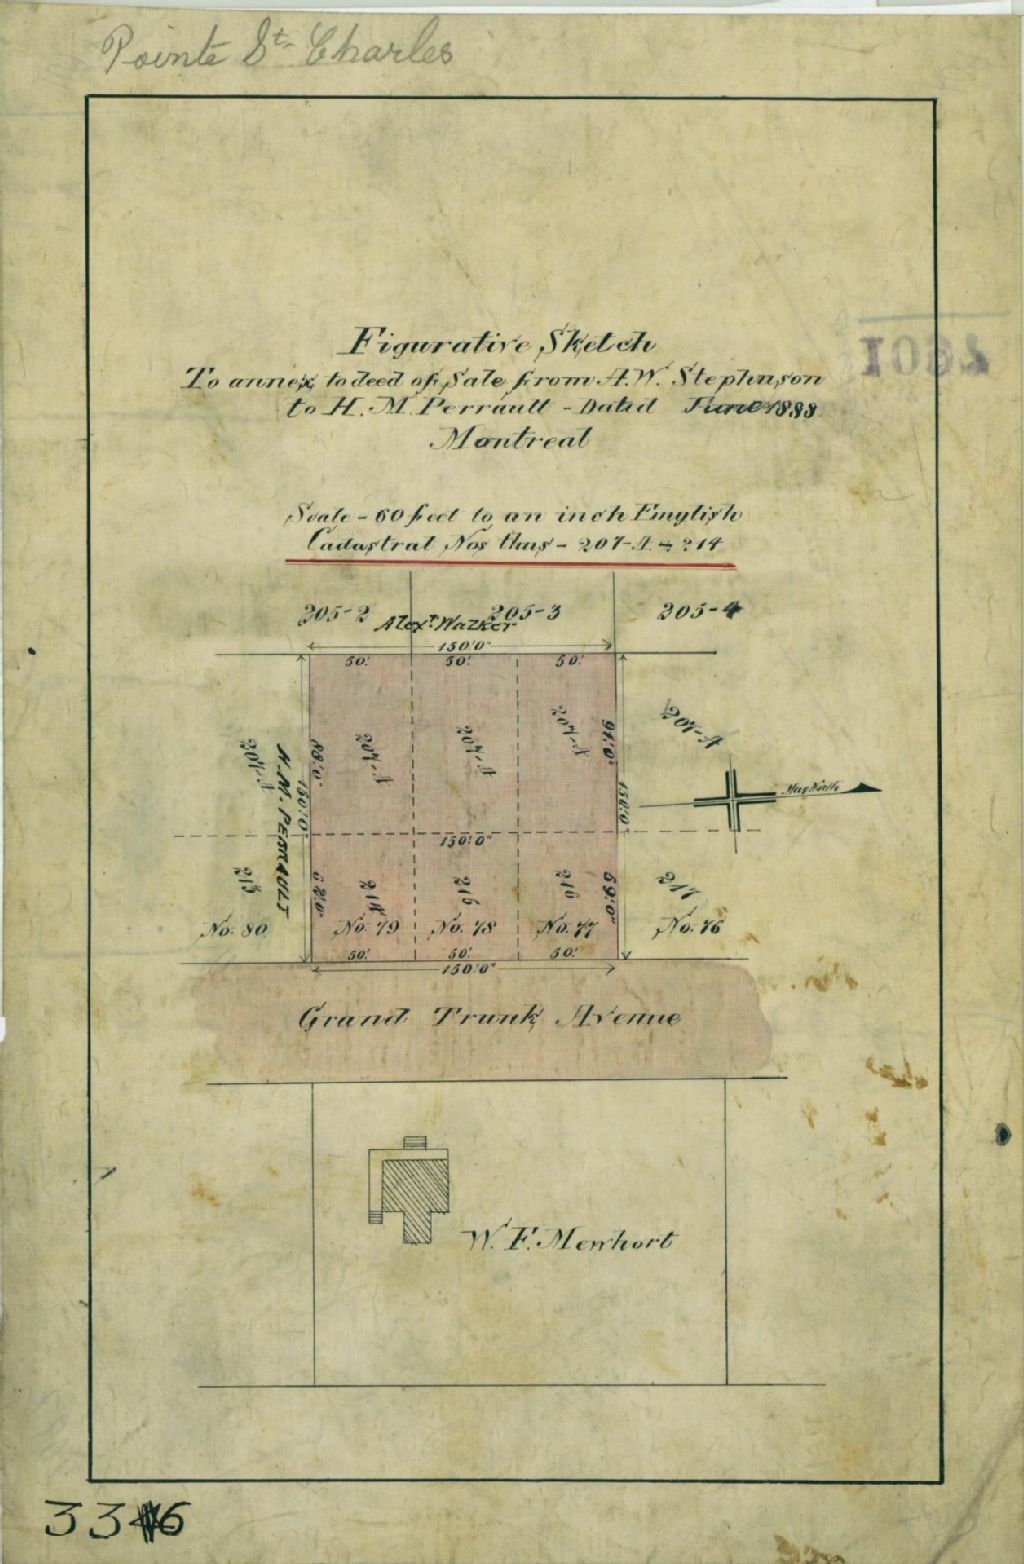 Pointe St. Charles
Figurative Sketch
To annex to deed of Sale from A.W. Stephnson
to H. M. Perrault - Dated June 1888
Montreal
Scale - 60 feet to an inch English
Cadastral Nos thus - 207-A - 214
205-2 205-3 205-4
Alext. Walker
150'0"
50' 50' 50'
207-A
207-A 207-A 207-A 207-A
88'0" 91'0"
150'0" 150'0"
Mag North
H. M. PERRAULT
150'0"
215 214 216 216 217
62'0" 59'0"
No. 80 No. 79 No. 78 No. 77 No. 76
50' 50' 50'
150'0"
Grand Trunk Avenue
W. F. Mewhort